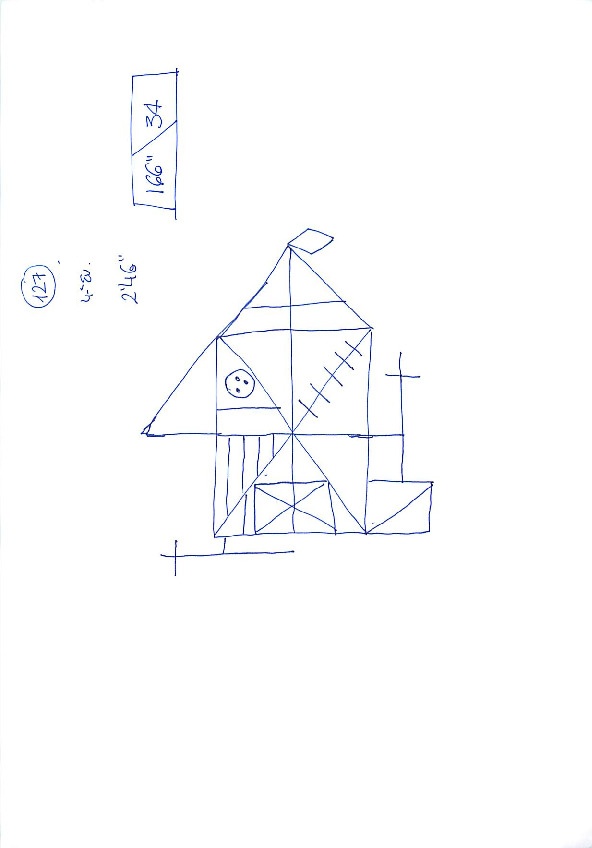 127.
4-Ev.
2'46"
166" / 34